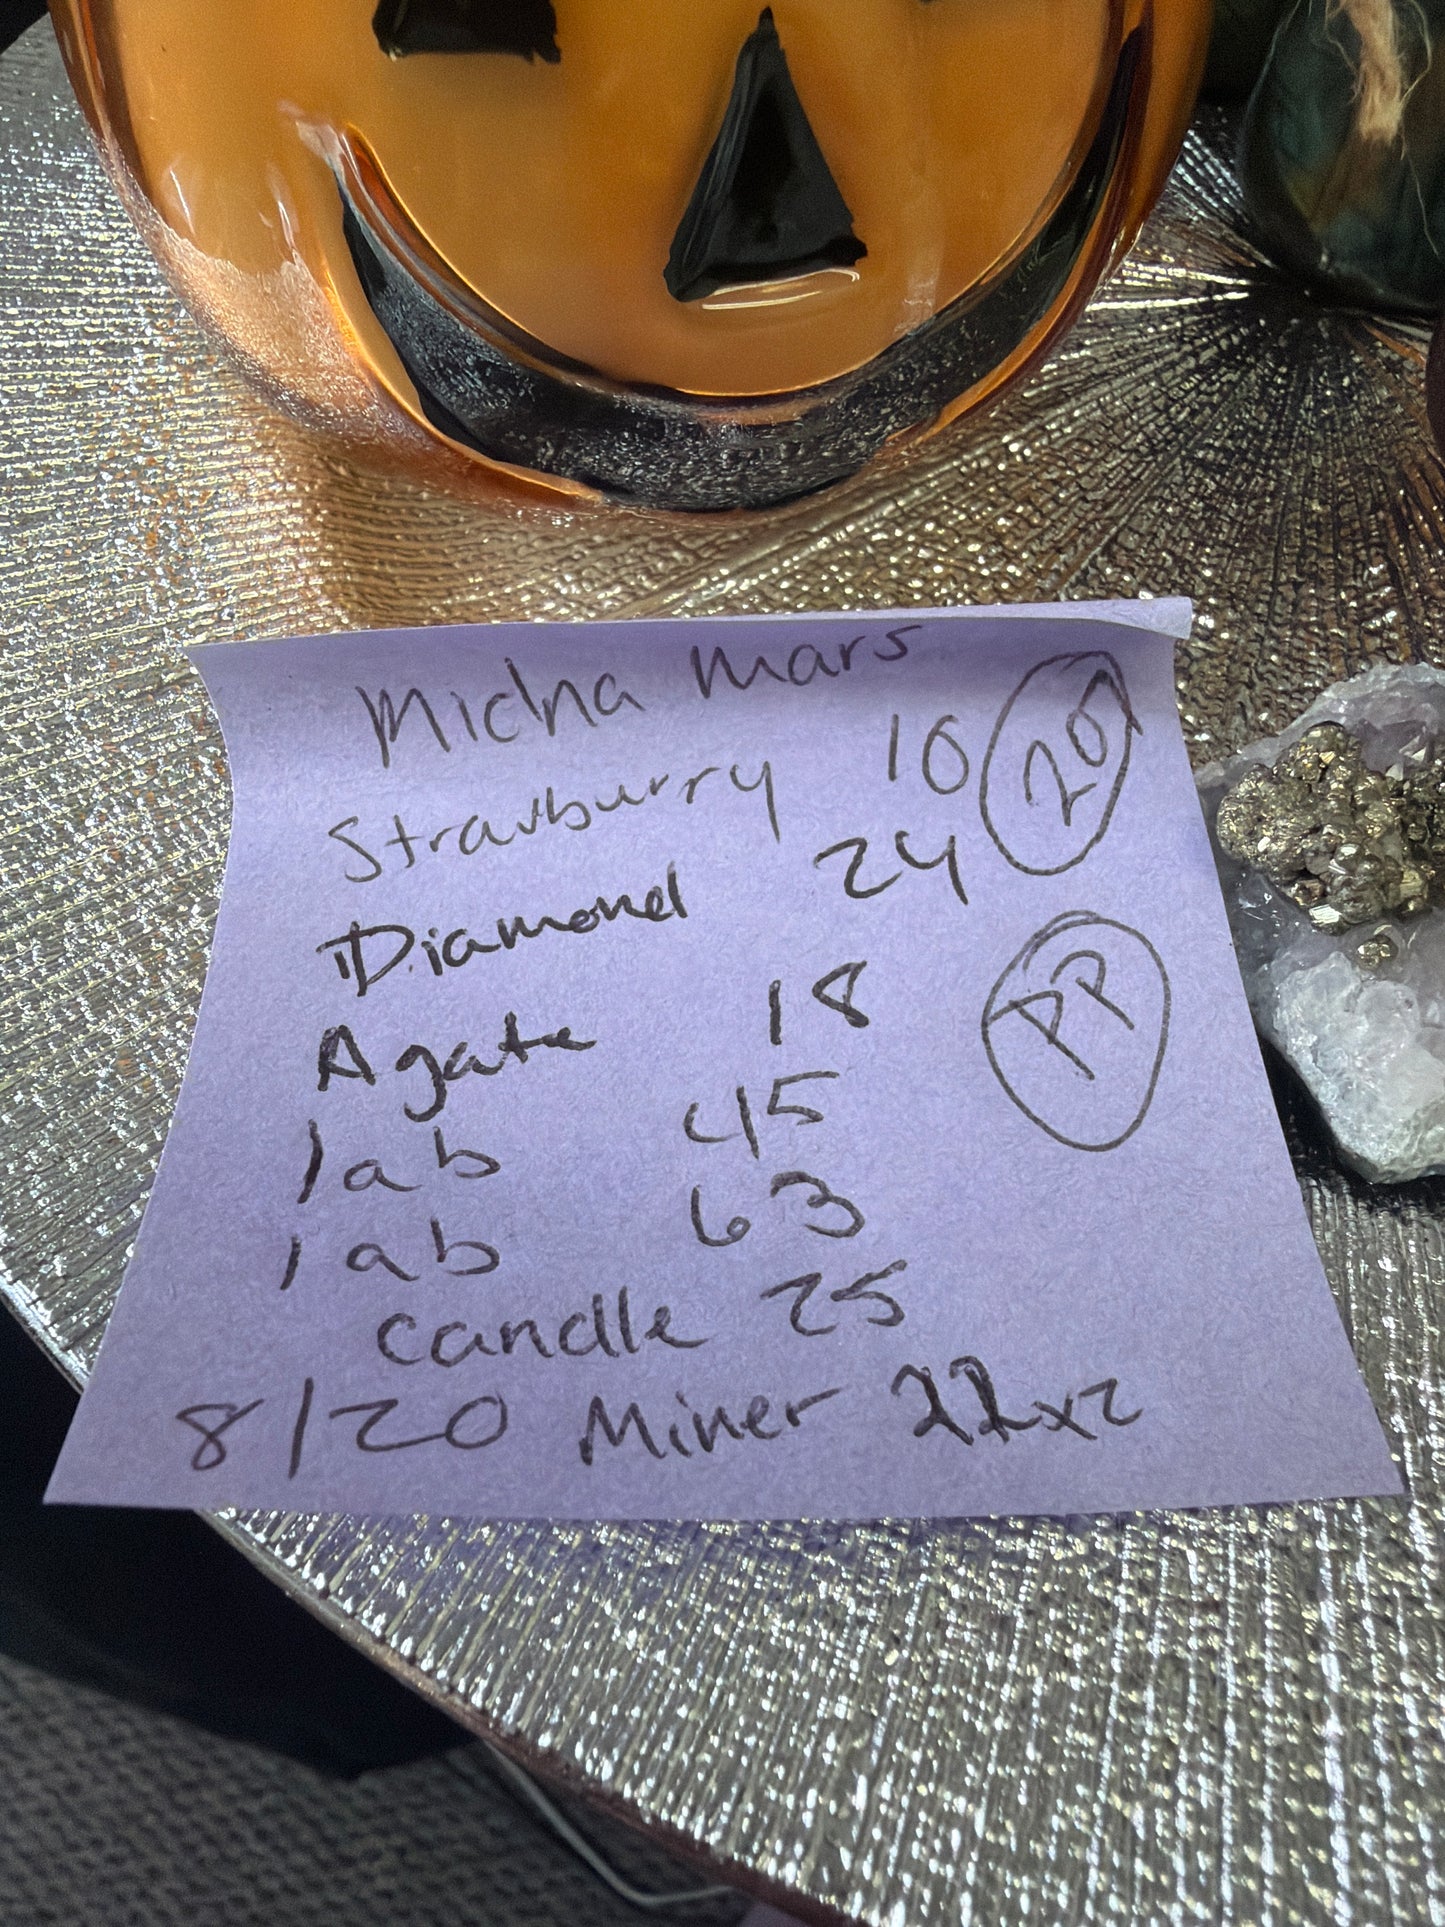 Micha Mars
Stravburry 10 20
Diamond 24
Agate 18 PP
lab 45
lab 63
candle 25
8/20 Miner 22x2